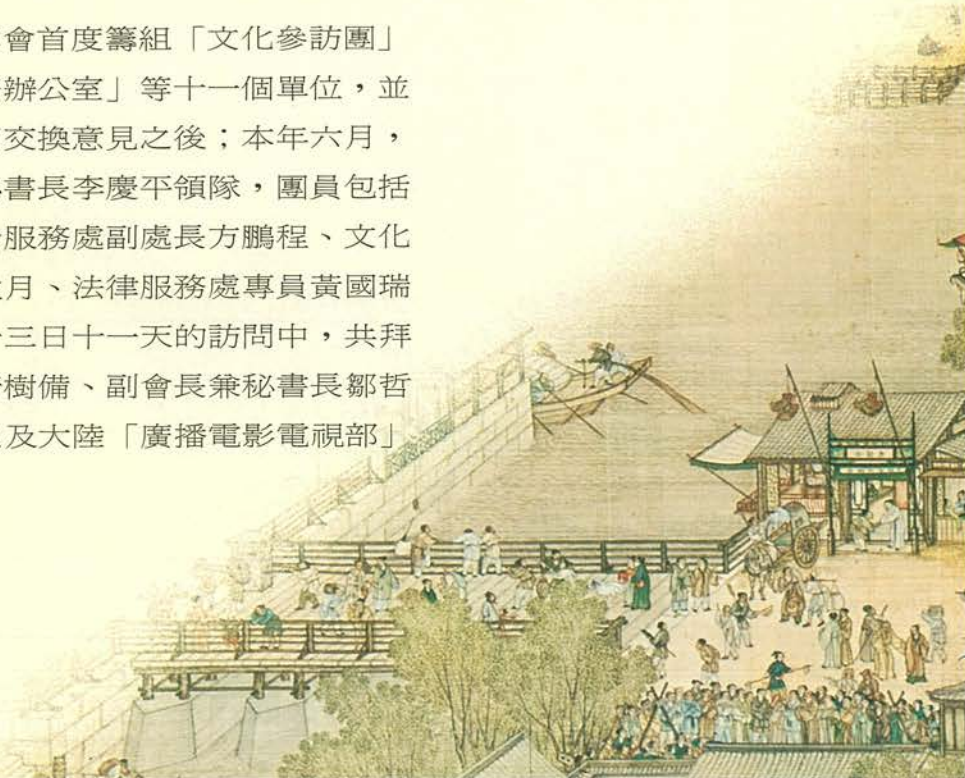 會首度籌組「文化參訪團」
辦公室」等十一個單位，並
交換意見之後；本年六月，
書長李慶平領隊，團員包括
服務處副處長方鵬程、文化
月、法律服務處專員黃國瑞
三日十一天的訪問中，共拜
樹備、副會長兼秘書長鄒哲
及大陸「廣播電影電視部」